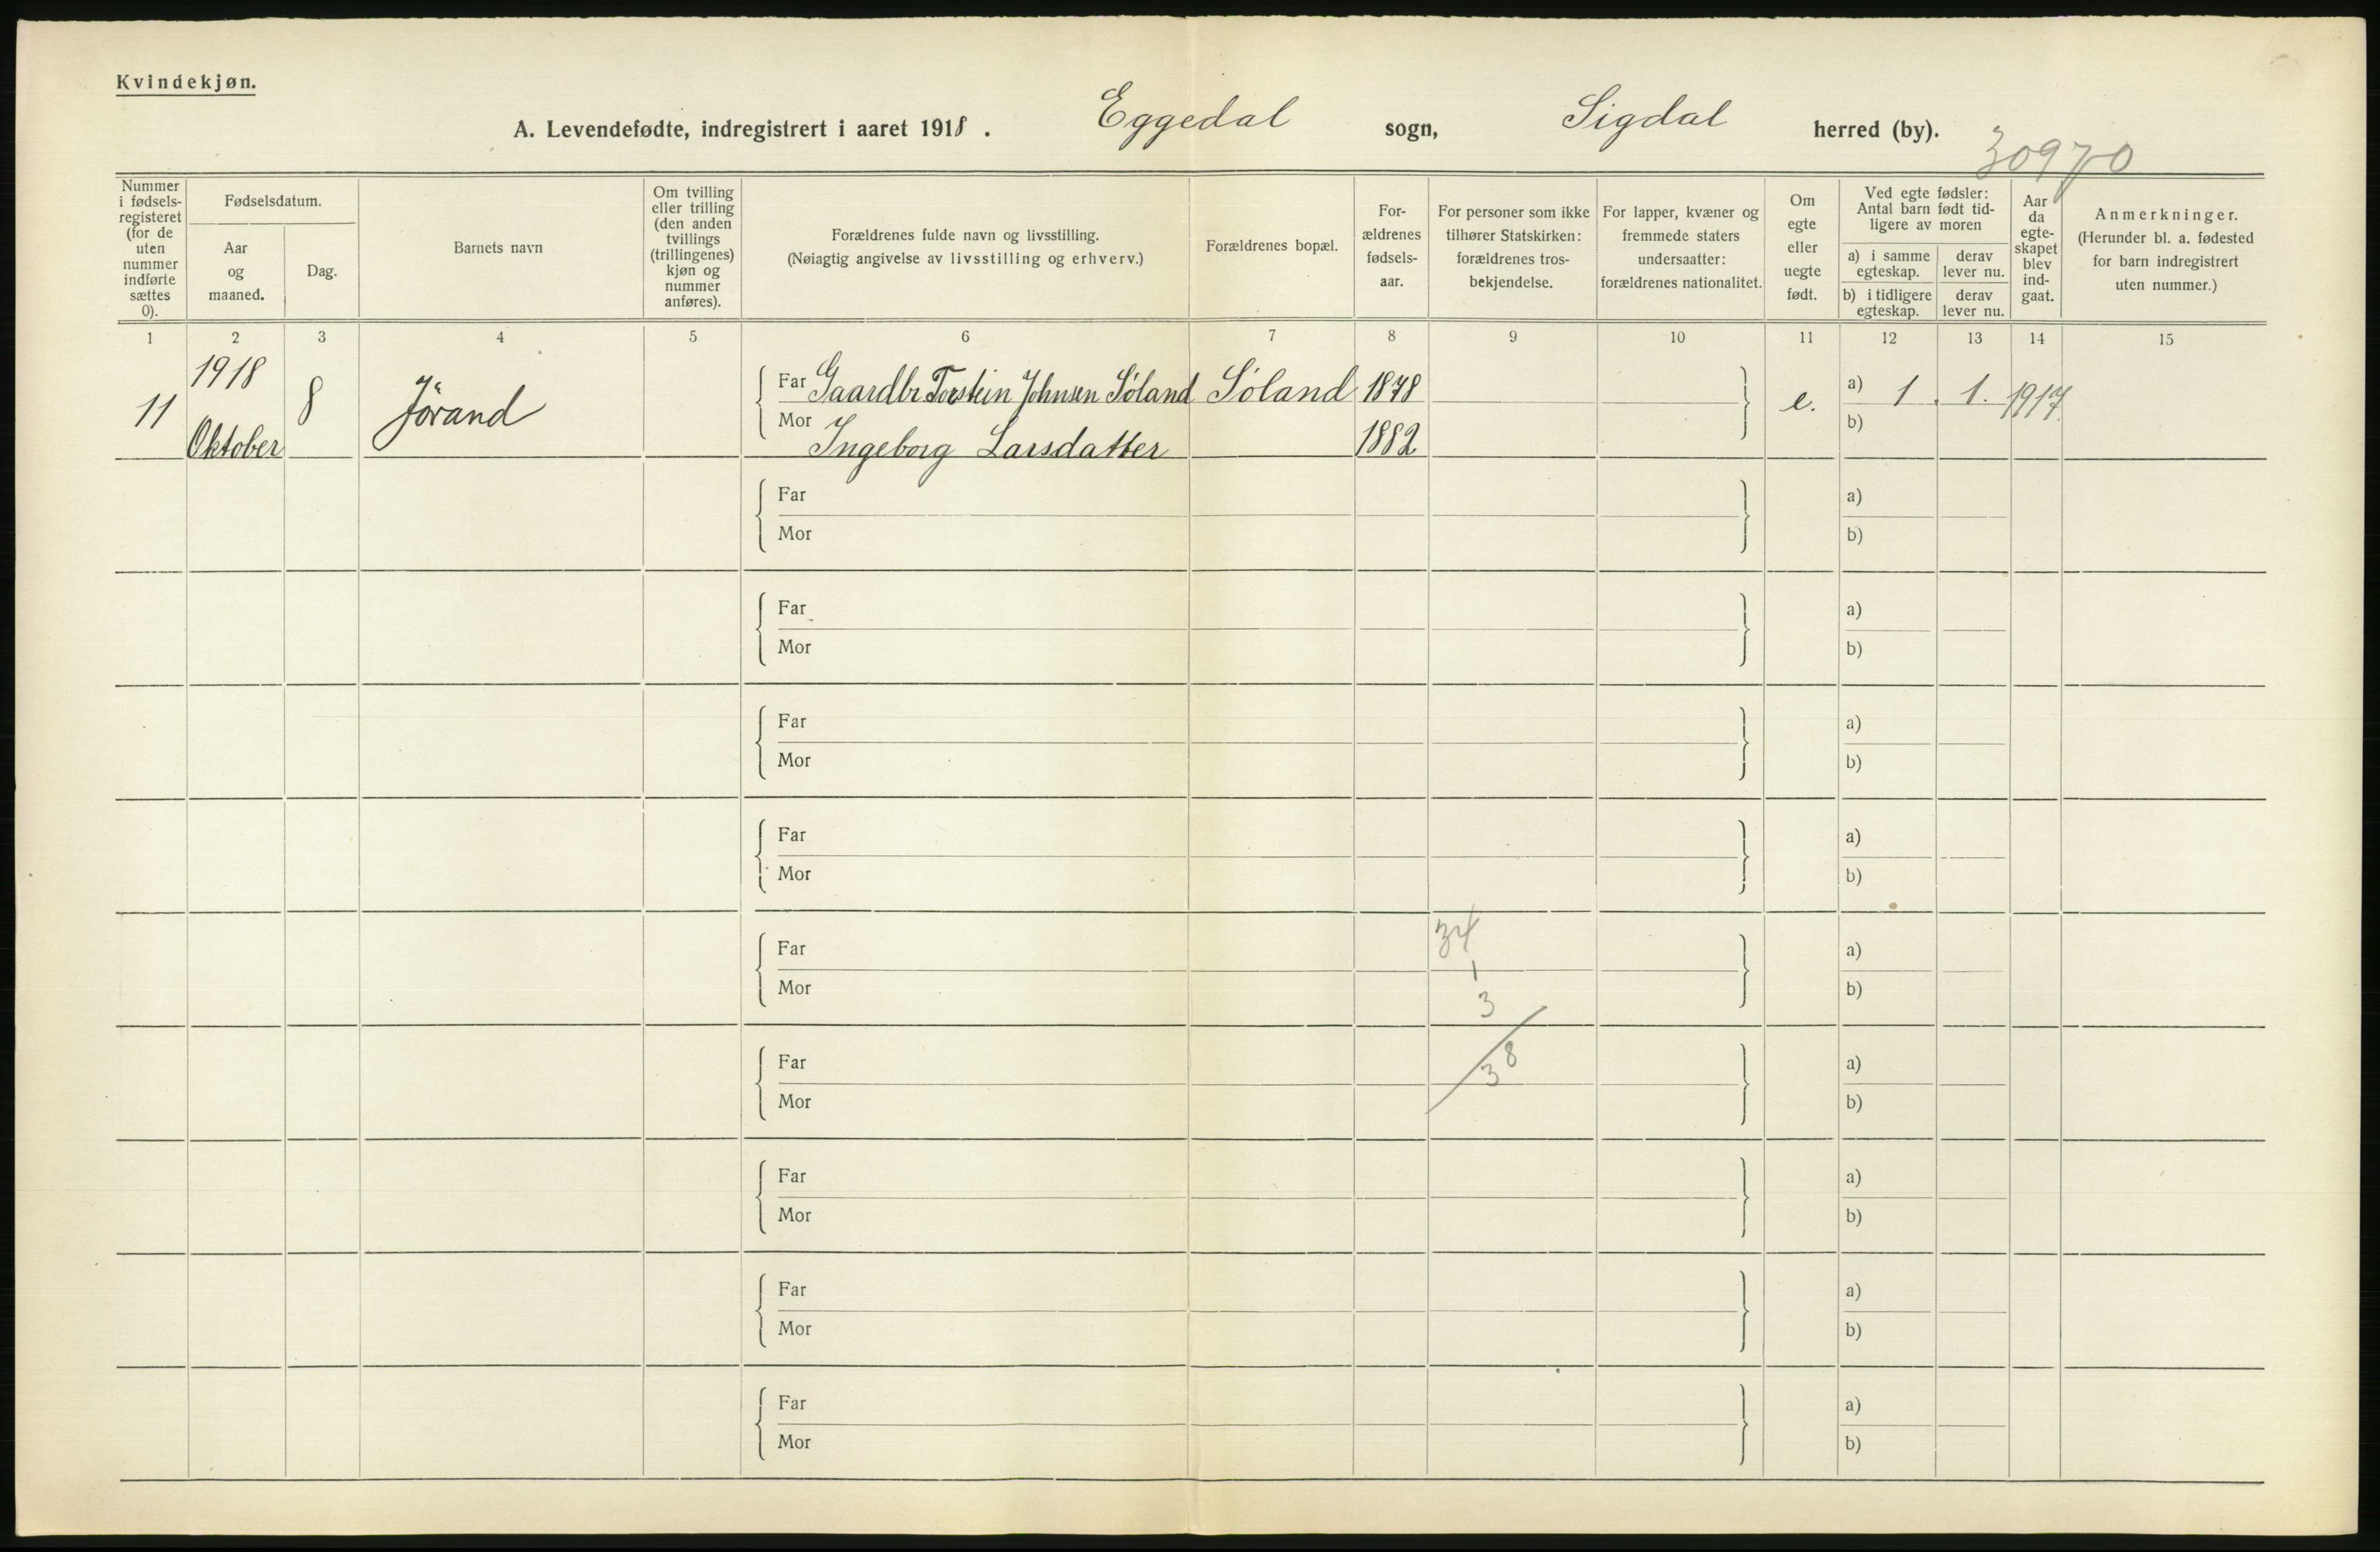 Kvindekjøn.
A. Levendefødte, indregistrert i aaret 1918. Eggedal sogn, Sigdal herred (by).
30970
Nummer i fødsels-registeret (for de uten nummer indførte sættes 0).
Fødselsdatum.
Aar og maaned.
Dag.
Barnets navn
Om tvilling eller trilling (den anden tvillings (trillingenes) kjøn og nummer anføres).
Forældrenes fulde navn og livsstilling.
(Nøiagtig angivelse av livsstilling og erhverv.)
Forældrenes bopæl.
For-ældrenes fødsels-aar.
For personer som ikke tilhører Statskirken: forældrenes tros-bekjendelse.
For lapper, kvæner og fremmede staters undersaatter: forældrenes nationalitet.
Om egte eller uegte født.
Ved egte fødsler: Antal barn født tid-ligere av moren
a) i samme egteskap.
derav lever nu.
b) i tidligere egteskap.
derav lever nu.
Aar da egte-skapet blev ind-gaat.
Anmerkninger.
(Herunder bl. a. fødested for barn indregistrert uten nummer.)
1 2 3 4 5 6 7 8 9 10 11 12 13 14 15
11 1918 Oktober 8 Jørand
Far Gaardbr. Torstein Johnsen Søland Søland 1878 e. a) 1. 1. 1917.
Mor Ingeborg Larsdatter 1882 b)
Far a)
Mor b)
Far a)
Mor b)
Far a)
Mor b)
Far a)
Mor b)
34
Far a)
1
Mor b)
3
Far 38 a)
Mor b)
Far a)
Mor b)
Far a)
Mor b)
Far a)
Mor b)